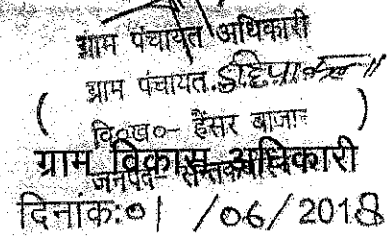 ग्राम पंचायत अधिकारी
ग्राम पंचायत.
( वि०ख०- हैंसर बाजार )
ग्राम विकास अधिकारी
जनपद-
दिनांक:01/06/2018